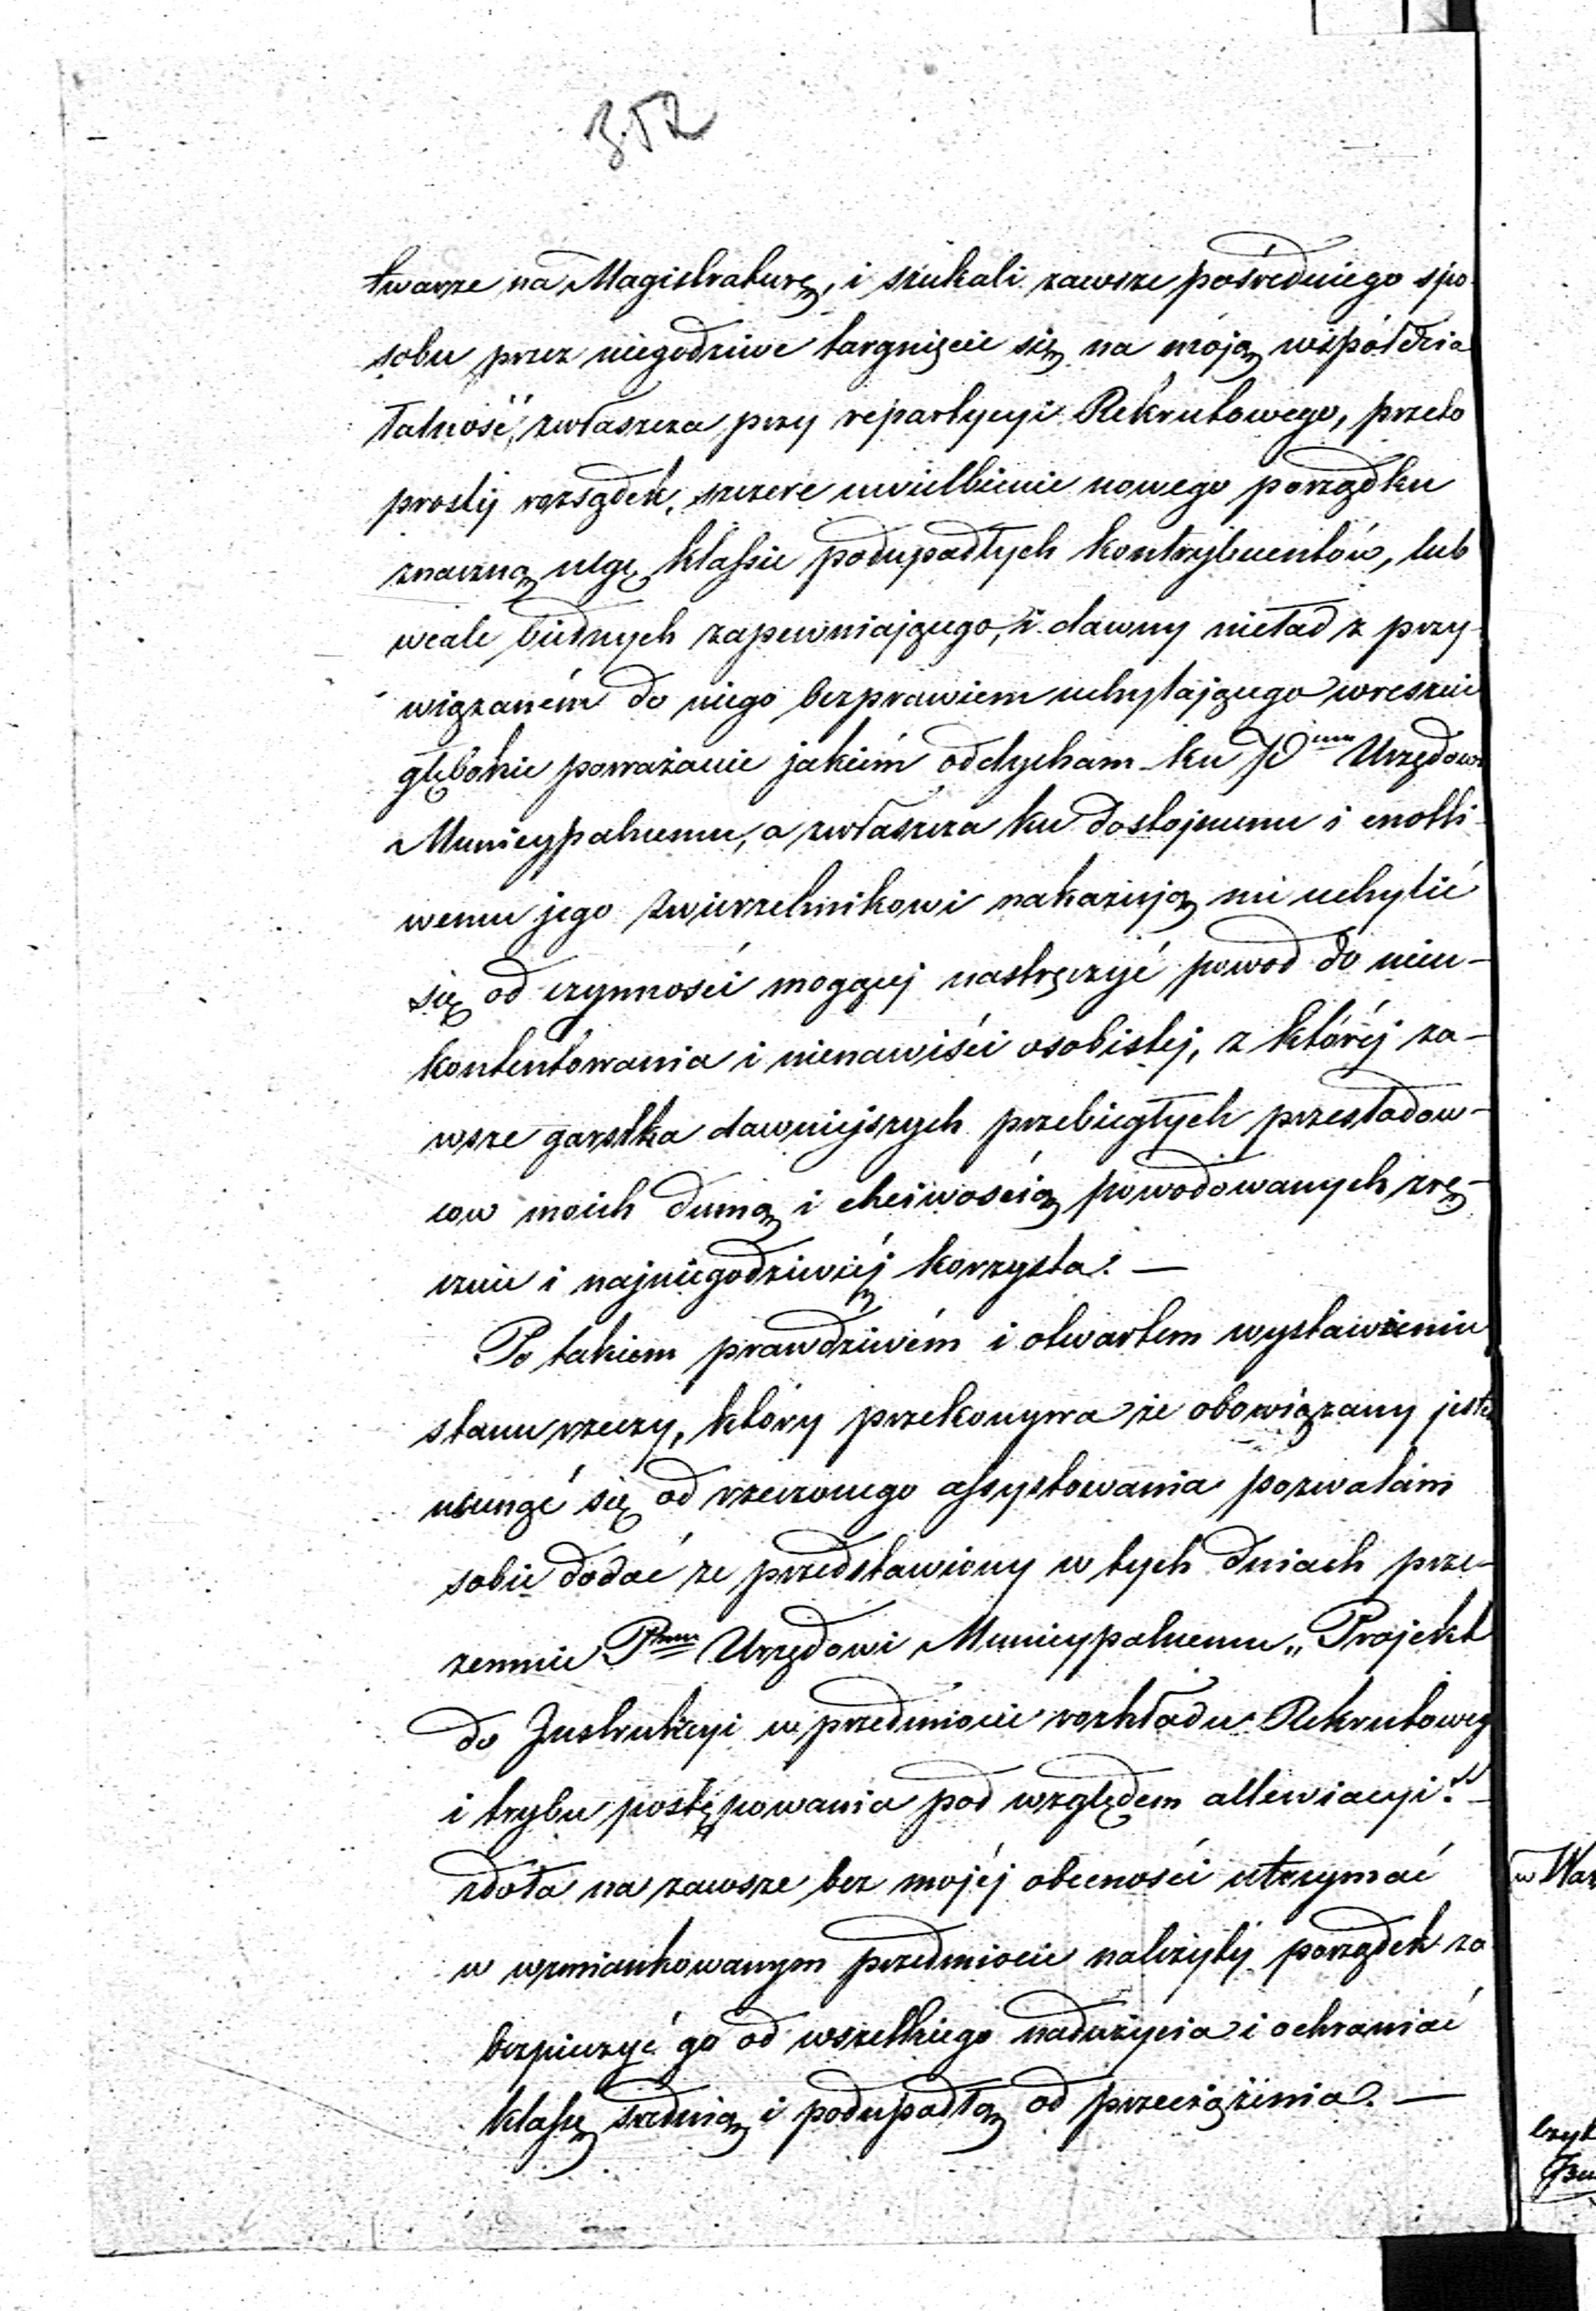 352
twarze na Magistraturę, i szukali zawsze pośredniego spo-
sobu przez niegodziwe targnięcie się na moją współdzia
łalność, zwłaszcza przy repartycyi Rekrutowego, przeto
prosty rozsądek, szczere uwielbienie nowego porządku
znaczną ulgę klassie podupadłych kontrybuentów, lub
wcale biednych zapewniającego, i dawny nieład z przy-
wiązaném do niego bezprawiem uchylającego wreszcie
głębokie poważanie jakiém oddycham ku Urzędowi
Municypalnemu, a zwłaszcza ku dostojnemu i cnotli-
wemu jego Zwierzchnikowi nakazują mi uchylić
się od czynności mogącej nastręczyć powod do nieu-
kontentowania i nienawiści osobistej, z któréj za-
wsze garstka dawniejszych przebiegłych prześladow-
cow moich dumą i chciwością powodowanych zrę-
cznie i najniegodziwiéj korzysta. —
Po takiem prawdziwém i otwartem wystawieniu
stanu rzeczy, który przekonywa że obowiązany jestem
usunąć się od rzeczonego assystowania pozwalam
sobie dodać że przedstawiony w tych dniach prze-
zemnie Pmu Urzędowi Municypalnemu „Projekt
do Instrukcyi w przedmiocie rozkładu Rekrutowego
i trybu postępowania pod względem allewiacyi." —
zdoła na zawsze bez mojéj obecności utrzymać
w wzmiankowanym przedmiocie należyty porządek za
bezpieczyć go od wszelkiego nadużycia i ochraniać
klasę średnią i podupadłą od przeciążenia. —
w War